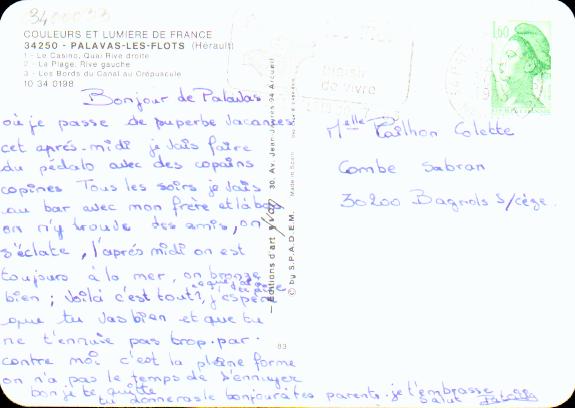 34000
COULEURS ET LUMIERE DE FRANCE
34250 - PALAVAS-LES-FLOTS (Hérault)
1 - Le Casino, Quai Rive droite
2 - La Plage, Rive gauche
3 - Les Bords du Canal au Crépuscule
10 34 0198
Bonjour de Palavas
où je passe de superbe vacances
cet après-midi je vais faire
du pédalo avec des copains
copines Tous les soirs je vais
au bar avec mon frère et là bas
on n'y trouve des amis, on
s'éclate, l'après midi on est
toujours à la mer, on bronze
bien; voilà c'est tout, j'espère
que tu vas bien et que tu
ne t'ennuie pas trop. par
contre moi c'est la pleine forme
on n'a pas le temps de s'ennuyer
bon je te quitte
tu donneras le bonjour à tes parents. je t'embrasse
salut
Editions d'art 30, Av. Jean-Jaurès 94 Arcueil
© by S.P.A.D.E.M. Made in Spain
83
plaisir
de vivre
1,60
Melle Pailhon Colette
Combe Sabran
30200 Bagnols s/cèze